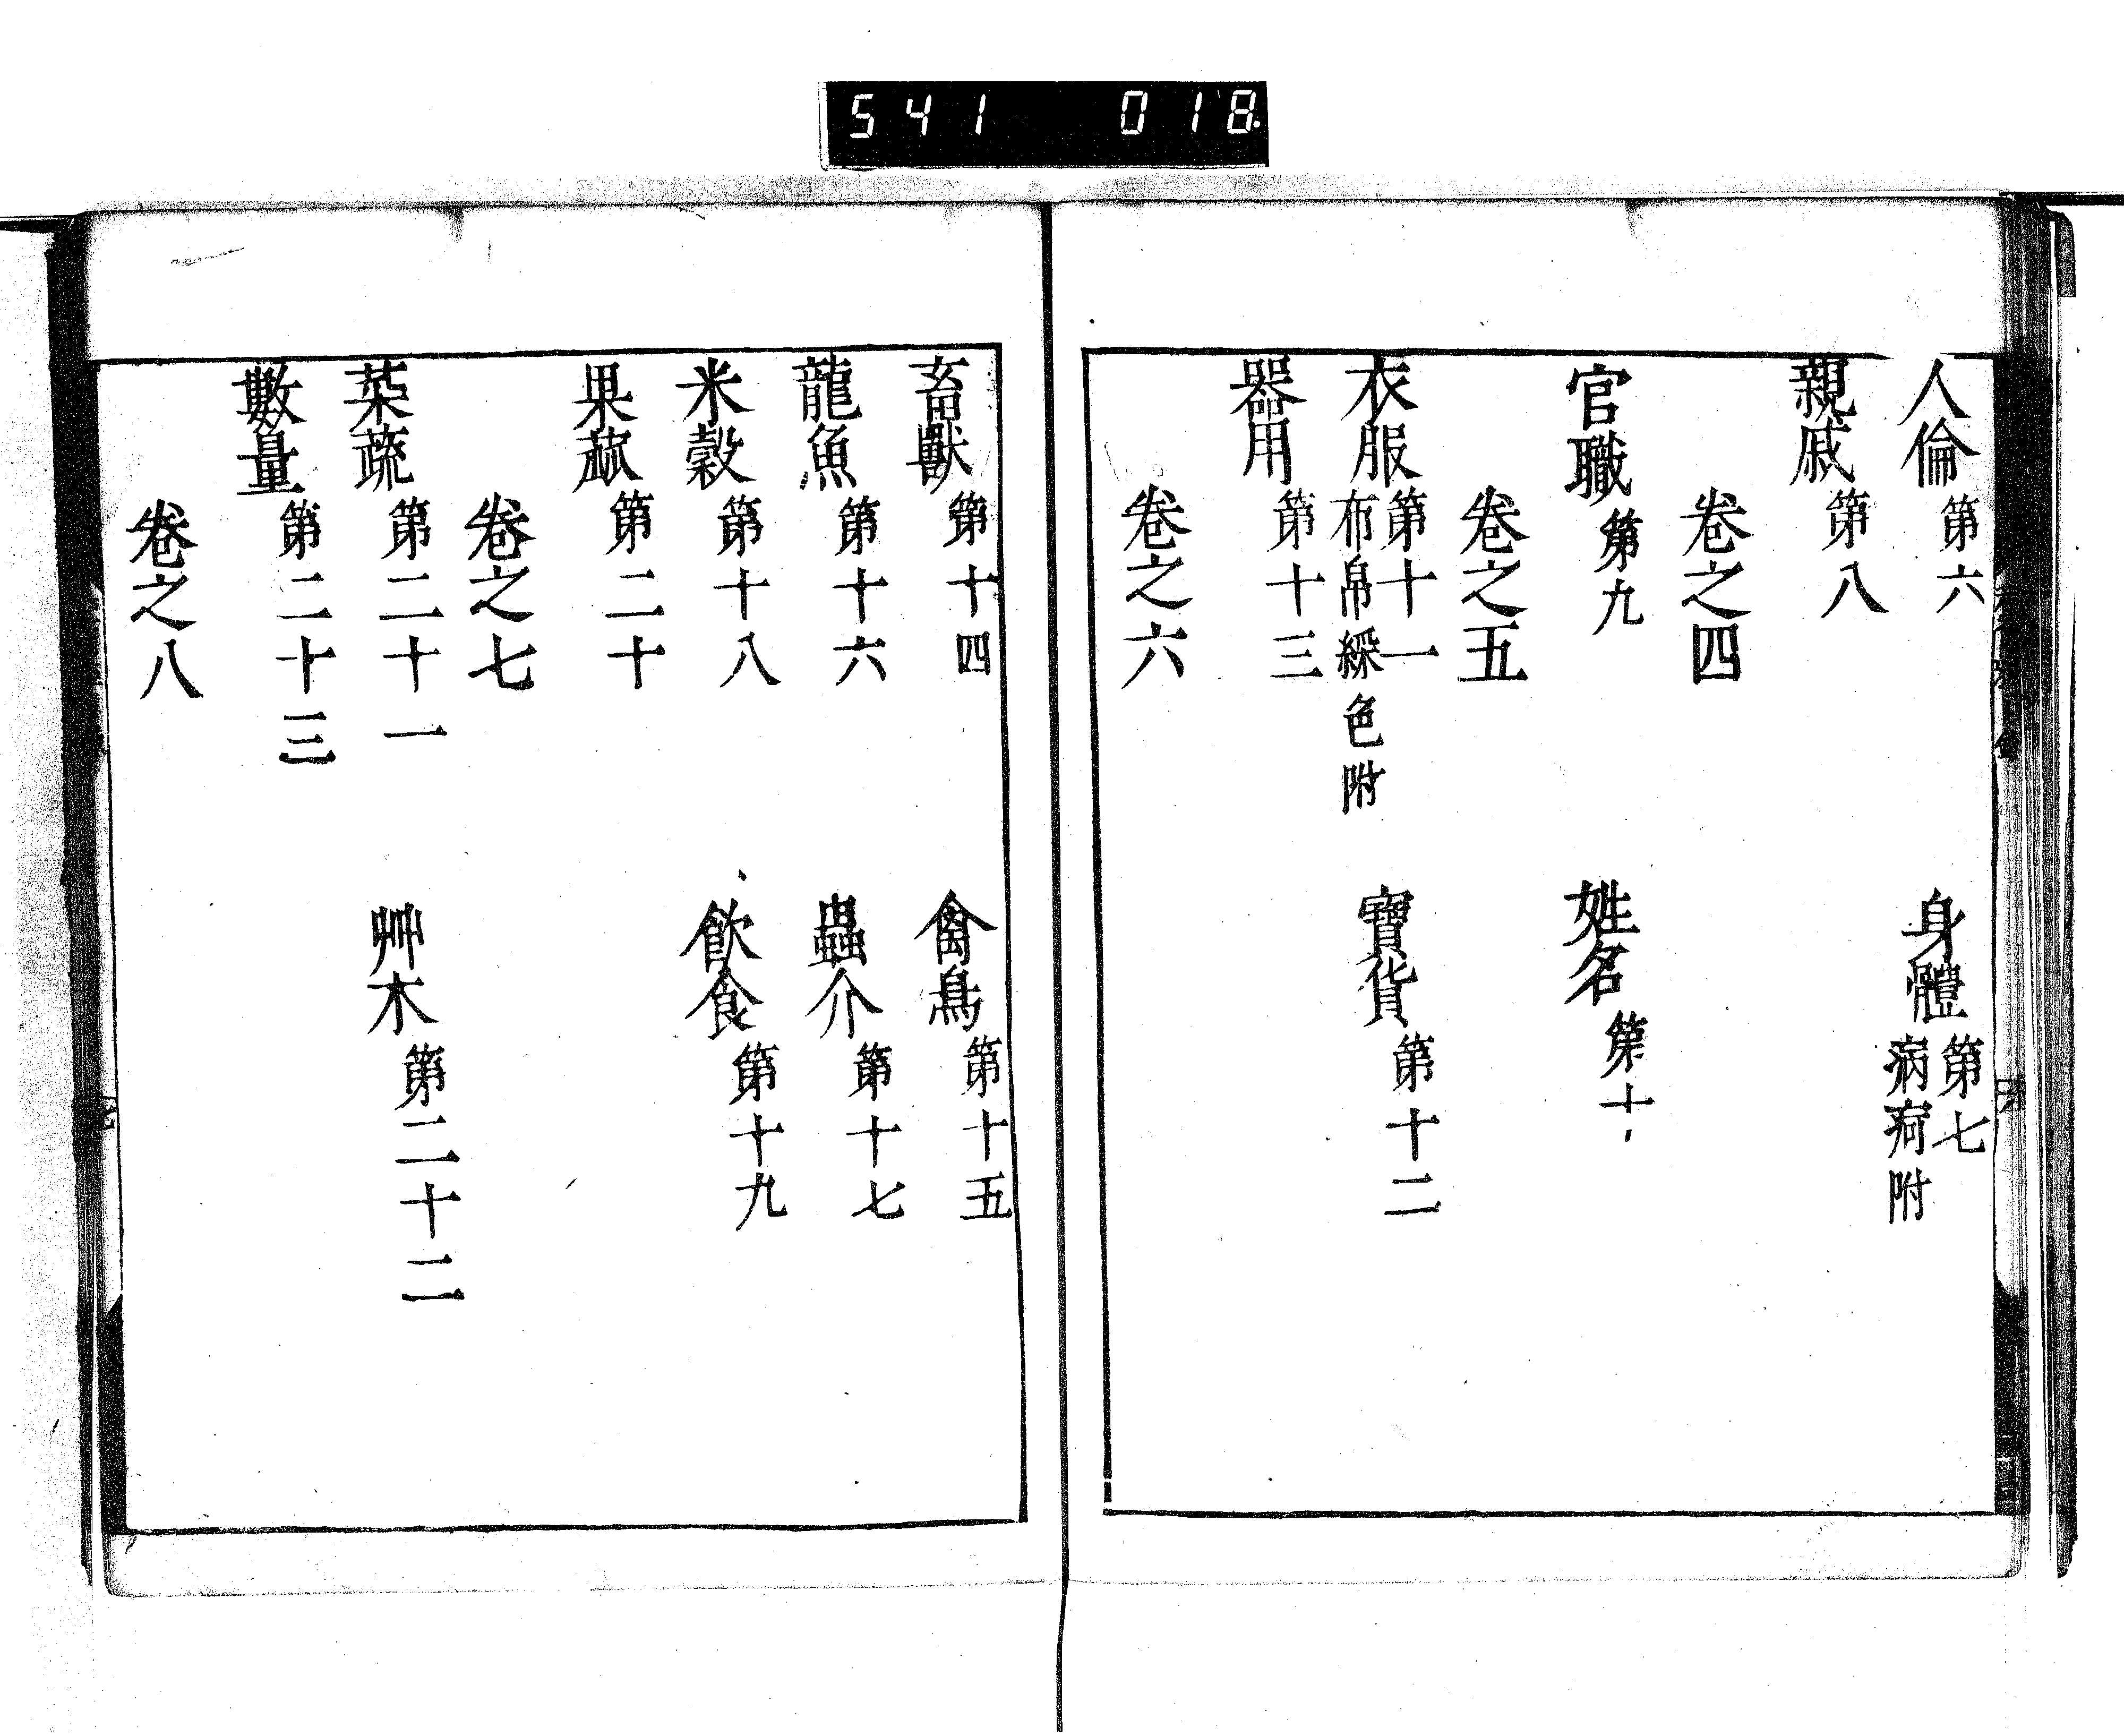 541 018
人倫第六 身體第七病疴附
親戚第八
卷之四
官職第九 姓名第十
卷之五
衣服第十一布帛綵色附 寶貨第十二
器用第十三
卷之六
畜獸第十四 禽鳥第十五
龍魚第十六 蟲介第十七
米穀第十八 飲食第十九
果蓏第二十
卷之七
菜蔬第二十一 艸木第二十二
數量第二十三
卷之八